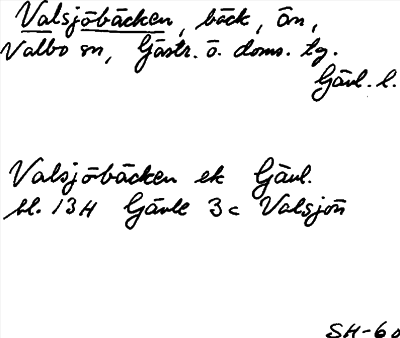 Valsjöbäcken, bäck, ån,
Valbo sn, Gästr. ö. doms. tg.
Gävl. l.
Valsjöbäcken ek Gävl.
bl. 13H Gävle 3c Valsjön
SH-60